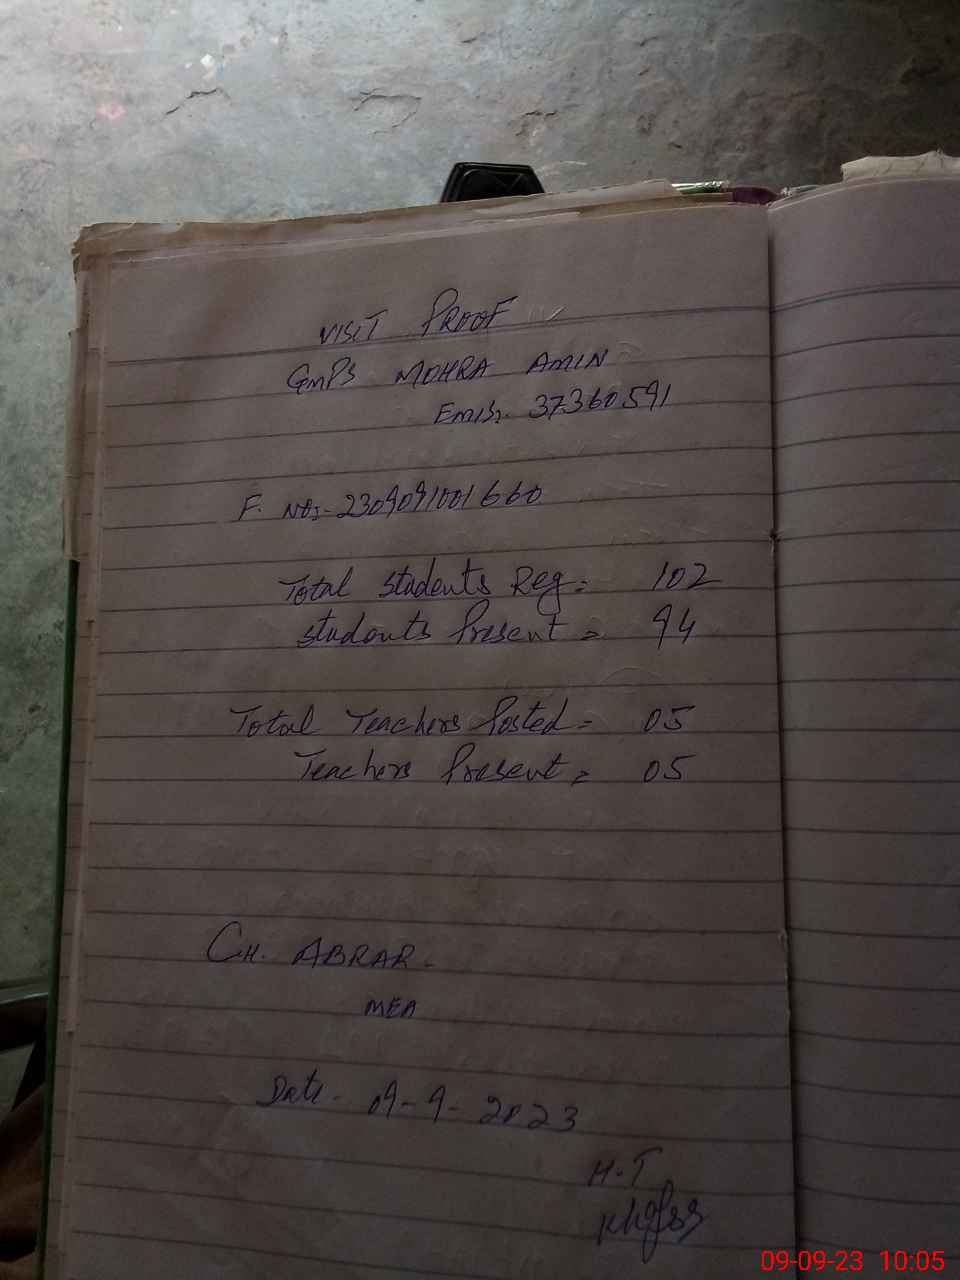 VISIT PROOF
GMPS MOHRA AMIN
EMIS:- 37360591
F. NO:- 2309091001660
Total Students Reg = 102
Students Present = 94
Total Teachers Posted = 05
Teachers Present = 05
CH. ABRAR -
MEA
Date - 09-9-2023
H.T
09-09-23 10:05